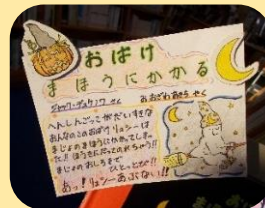 おばけ
まほうにかかる
ジャック・デュケノワ さく
おおさわあきら やく
へんしんごっこがだいすきな
おんなのこのおばけ リュシーは
まじょのまほうにかかってしまっ
まじょのおしろまで
ひとっとび!!
あっ!リュシーあぶない!!!